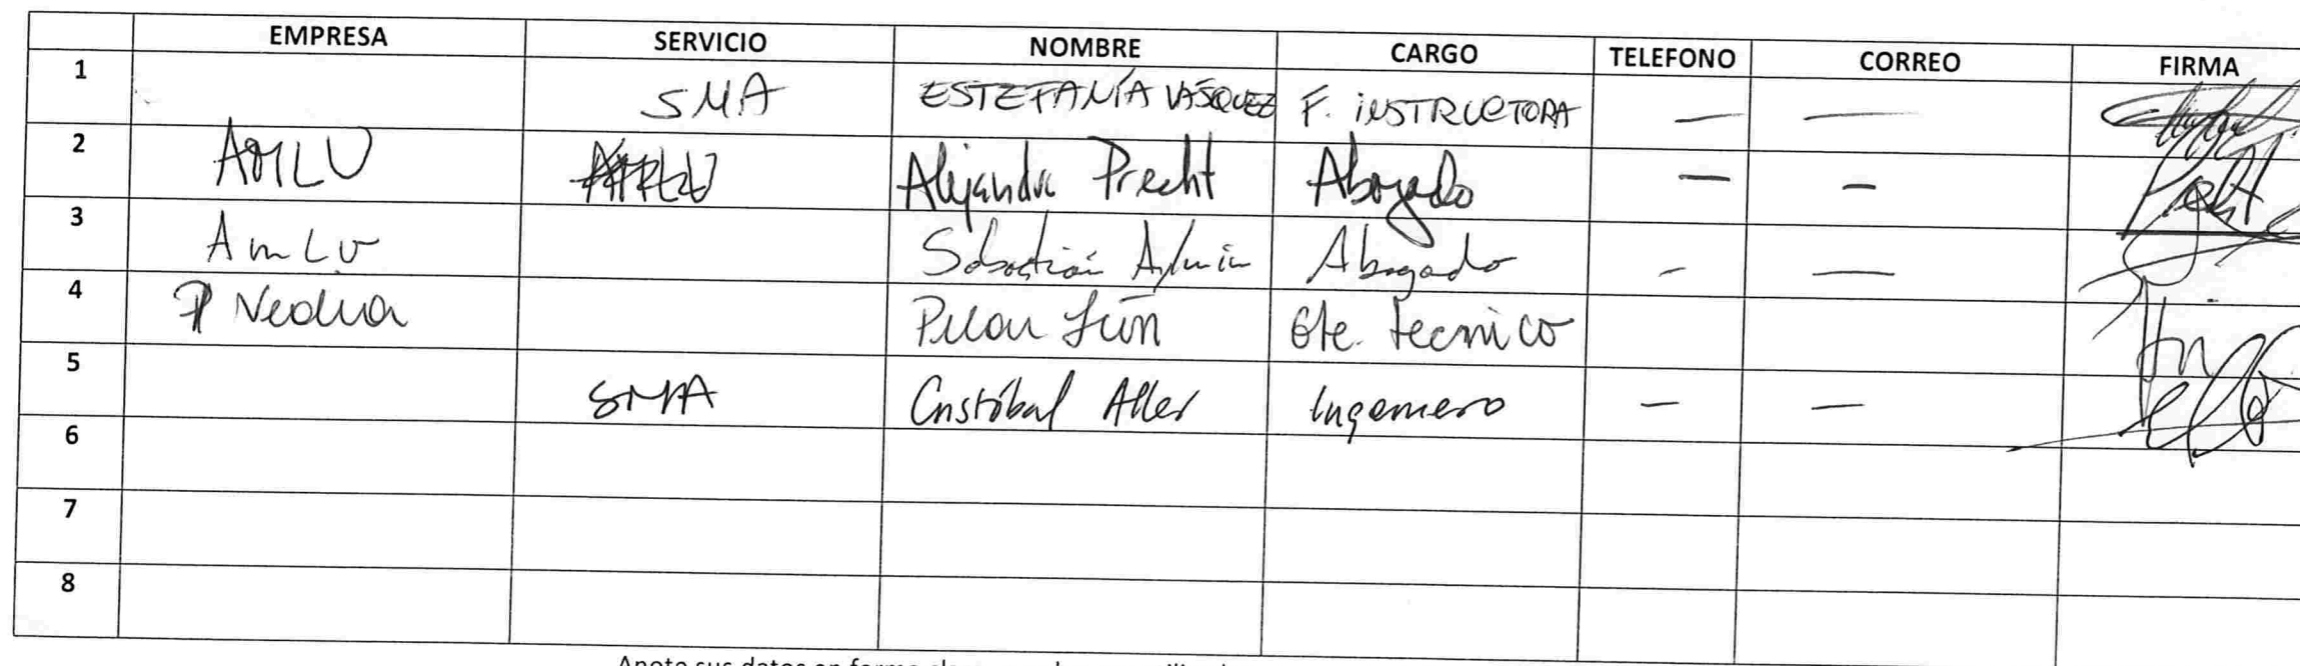 EMPRESA SERVICIO NOMBRE CARGO TELEFONO CORREO FIRMA
1 SMA ESTEFANÍA VÁSQUEZ F. INSTRUCTORA — —
2 AMLV Alejandra Precht Abogado — —
3 AMLV Sebastián Aylwin Abogado - —
4 Nedua Pilar Gte. Tecnico
5 SMA Cristóbal Aller Ingeniero — —
6
7
8